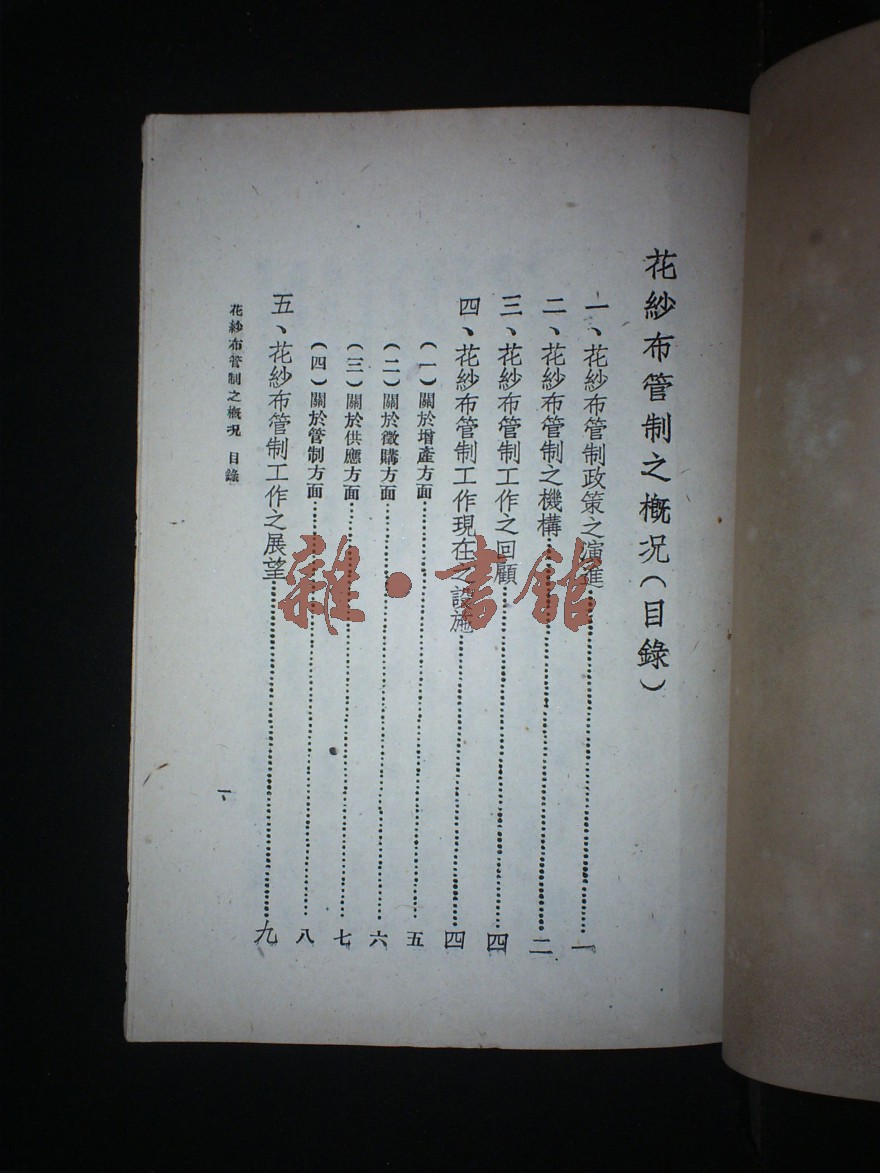 花紗布管制之概况(目錄)
一、花紗布管制政策之演進……一
二、花紗布管制之機構……二
三、花紗布管制工作之回顧……四
四、花紗布管制工作現在之設施……四
(一)關於增產方面……五
(二)關於徵購方面……六
(三)關於供應方面……七
(四)關於管制方面……八
五、花紗布管制工作之展望……九
花紗布管制之概况 目錄
一
雜·書館